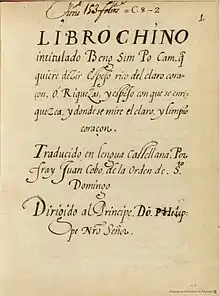 1
LIBRO CHINO
intitulado Beng Sim Po Cam, q̃
quiere dezir Espejo rico del claro cora-
çon, o Riquezas, y espejo con que se enri-
quezca, y donde se mire el claro, y limpio
coraçon.
Traducido en lengua Castellana. Por
fray Juan Cobo, de la Orden de S.to
Domingo
Dirigido al Principe. Dō. Phelip-
pe Nrõ Señor.